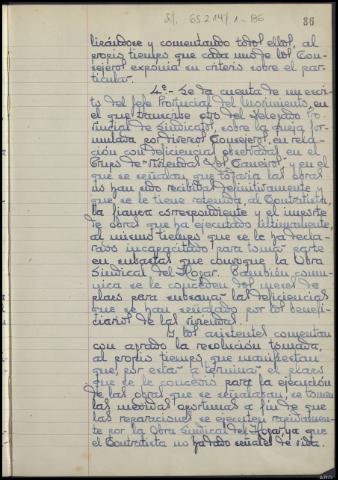 Sg. 65214/1-86
86
lizándose y comentando todos ellos, al
propio tiempo que cada uno de los Con-
sejeros exponía su criterio sobre el par-
ticular.
4º.- Se da cuenta de un escri-
to del Jefe Provincial del Movimiento, en
el que transcribe otro del Delegado Pro-
vincial de Sindicatos, sobre la queja for-
mulada por diversos Consejeros, en rela-
ción con deficiencias observadas en el
Grupo de Viviendas "Los Caneiros" y en el
que se señalan que todavía las obras
no han sido recibidas definitivamente y
que se le tiene retenida, al Contratista,
la fianza correspondiente y el importe
de obras que ha ejecutado últimamente,
al mismo tiempo que se le ha decla-
rado incapacitado para tomar parte
en subastas que convoque la Obra
Sindical del Hogar. También comuni-
ca se le conceden dos meses de
plazo para subsanar las deficiencias
que se han señalado por los benefi-
ciarios de las viviendas.
Y los asistentes comentan
con agrado la resolución tomada,
al propio tiempo que manifiestan
que, por estar a terminar el plazo
que se le concedió para la ejecución
de las obras que se señalaban, se tomen
las medidas oportunas a fin de que
las reparaciones se ejecuten rápidamen-
te por la Obra Sindical del Hogar, ya que
el Contratista no ha dado señales de vida.